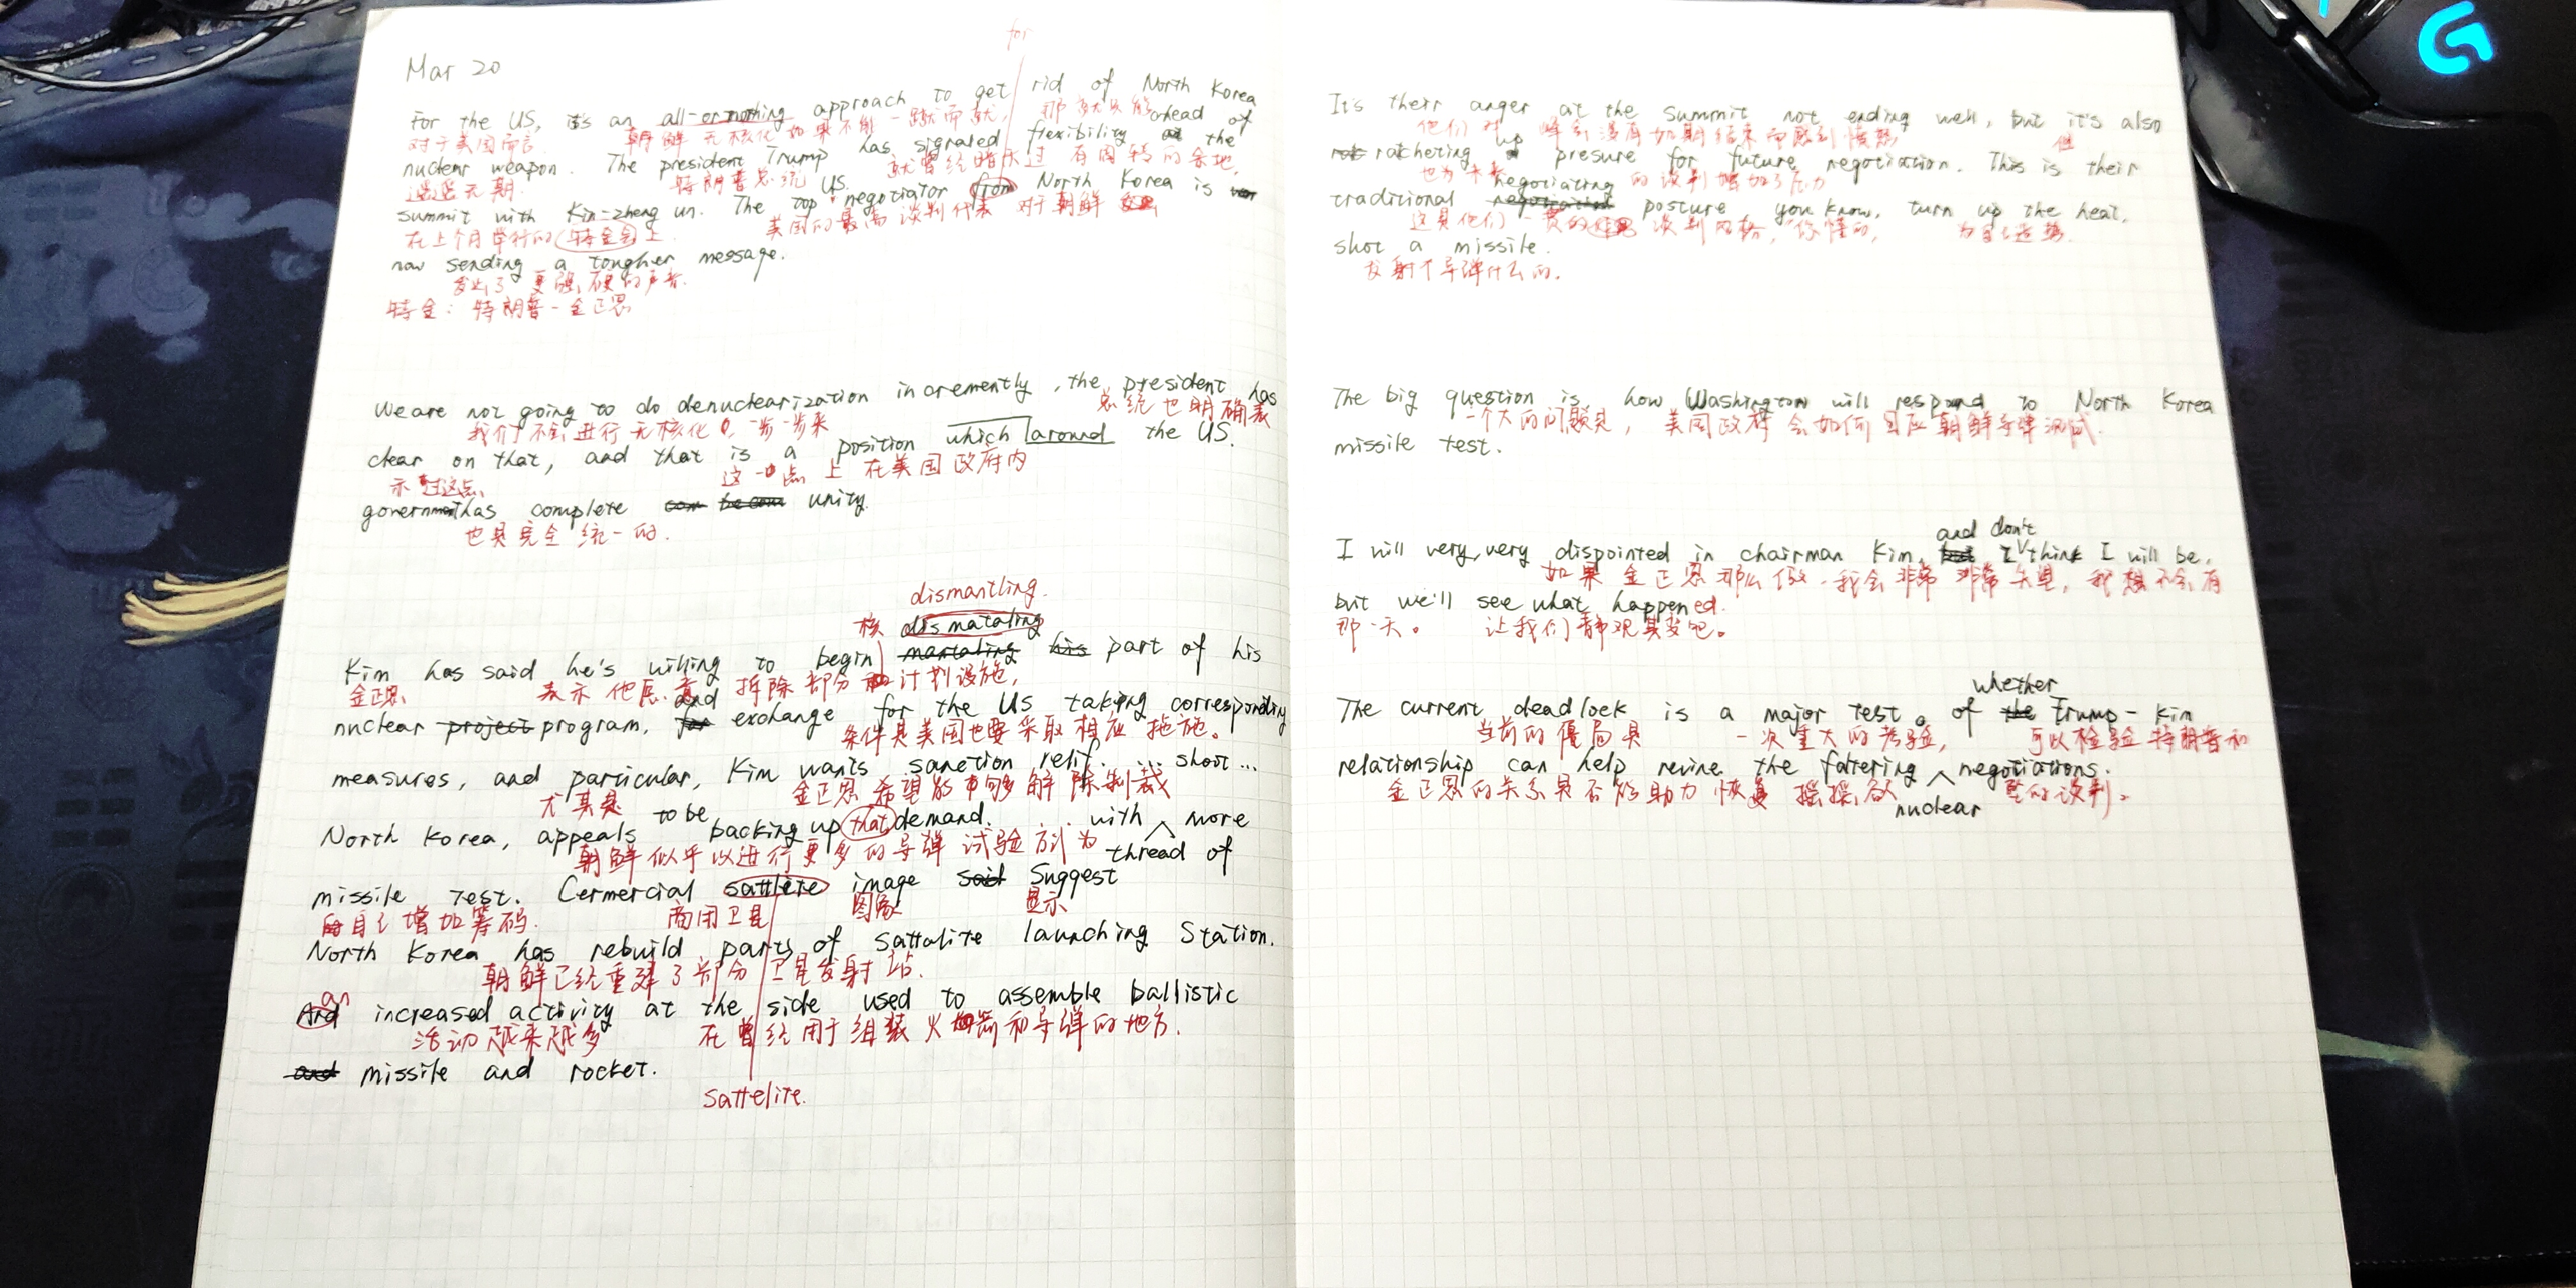 for
Mar 20
For the US, it's an all-or-nothing approach to get rid of North Korea
对于美国而言 朝鲜无核化如果不能一蹴而就, 那就只能
nuclear weapon. The president Trump has signaled flexibility ahead of the
遥遥无期. 特朗普总统 就曾经暗示过 有周转的余地,
summit with Kim-zheng un. The top US. negotiator from North Korea is
在上个月举行的特金会上. 美国的最高谈判代表 对于朝鲜
now sending a tougher message.
发出了更强硬的声音.
特金: 特朗普-金正恩
We are not going to do denuclearization incremently, the president has
我们不会进行无核化 一步一步来 总统也明确表
clear on that, and that is a position which around the US.
示过这点 这一点上 在美国政府内
government has complete unity.
也是完全统一的.
dismantling.
核 dismataling
Kim has said he's willing to begin mantaling his part of his
金正恩 表示他愿意 拆除部分 计划设施,
nuclear project program. and exchange for the US taking corresponding
条件是美国也要采取相应措施。
measures, and particular, Kim wants sanction relif. ... shoot ...
尤其是 金正恩希望能够解除制裁
North Korea, appeals to be backing up that demand. .. with more
朝鲜似乎以进行更多的导弹试验 为 thread of
missile test. Cermercial sattlite image said suggest
自己增加筹码. 商用卫星 图像 显示
North Korea has rebuild parts of sattalite launching station.
朝鲜已经重建了部分卫星发射站.
And an increased activity at the side used to assemble ballistic
活动越来越多 在曾经用于组装火箭和导弹的地方.
and missile and rocket.
sattelite.
It's their anger at the summit not ending well, but it's also
他们对 峰会没有如期结束而感到愤怒 但
ratcheting up presure for future negotiation. This is their
也为未来 的谈判增加了压力
traditional negotiating posture you know, turn up the heat,
这是他们一贯的 谈判风格, 你懂的, 为自己造势.
shot a missile.
发射个导弹什么的.
The big question is, how Washington will respond to North Korea
一个大的问题是, 美国政府会如何回应朝鲜导弹测试.
missile test.
and don't
I will very, very dispointed in chairman Kim, I think I will be,
如果金正恩那么做, 我会非常非常失望, 我想不会有
but we'll see what happened.
那一天。 让我们静观其变吧。
whether
The current deadlock is a major test of the Trump-Kim
当前的僵局是 一次重大的考验, 可以检验特朗普和
relationship can help revine the faltering negotiations.
金正恩的关系是否能助力恢复摇摇欲 坠的谈判.
nuclear
G